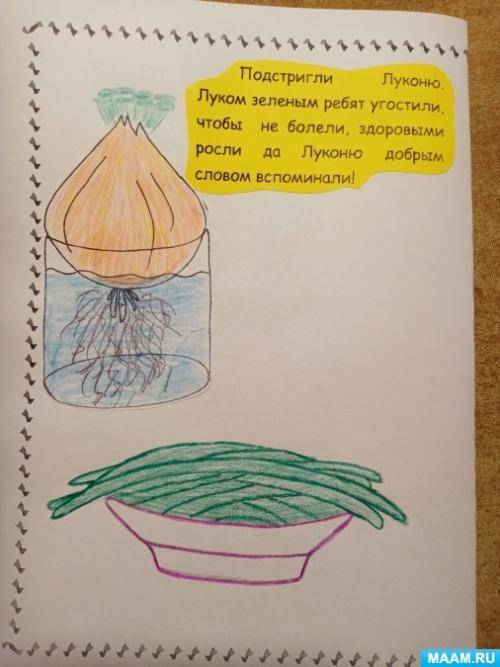 Подстригли Луконю.
Луком зеленым ребят угостили,
чтобы не болели, здоровыми
росли да Луконю добрым
словом вспоминали!
MAAM.RU